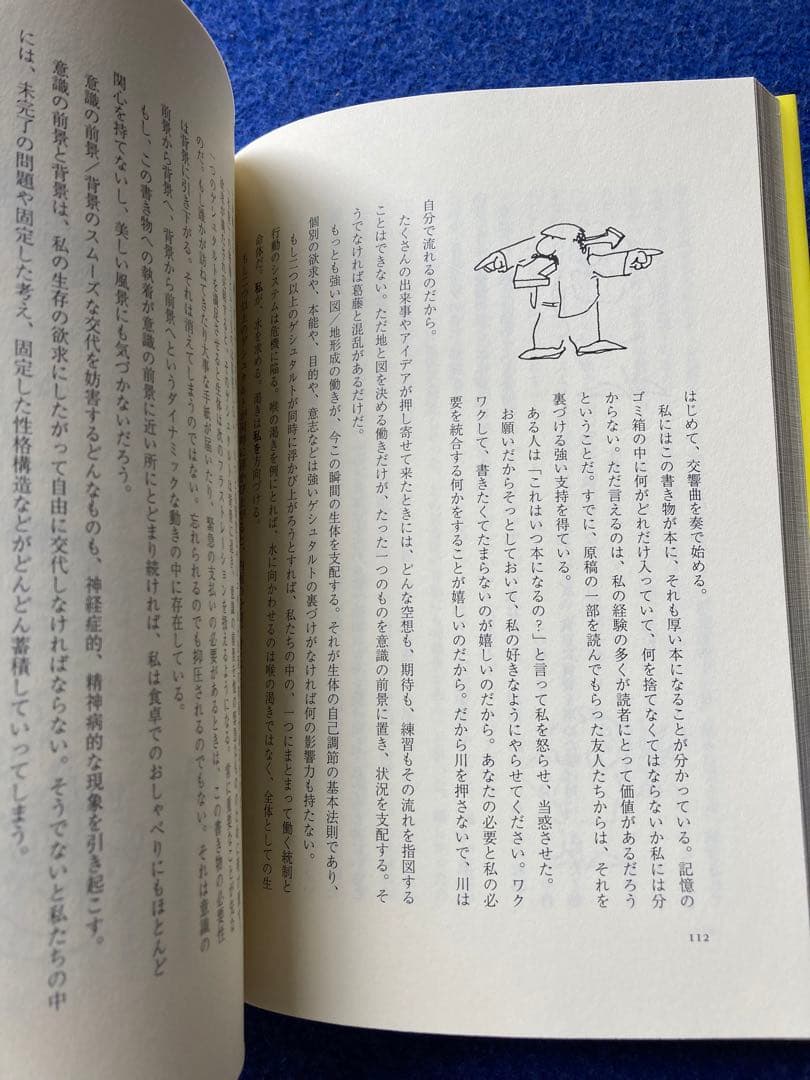 はじめて、交響曲を奏で始める。
私にはこの書き物が本に、それも厚い本になることが分かっている。記憶の
ゴミ箱の中に何がどれだけ入っていて、何を捨てなくてはならないか私には分
からない。ただ言えるのは、私の経験の多くが読者にとって価値があるだろう
ということだ。すでに、原稿の一部を読んでもらった友人たちからは、それを
裏づける強い支持を得ている。
ある人は「これはいつ本になるの?」と言って私を怒らせ、当惑させた。
お願いだからそっとしておいて、私の好きなようにやらせてください。ワク
ワクして、書きたくてたまらないのが嬉しいのだから。あなたの必要と私の必
要を統合する何かをすることが嬉しいのだから。だから川を押さないで、川は
自分で流れるのだから。
たくさんの出来事やアイデアが押し寄せて来たときには、どんな空想も、期待も、練習もその流れを指図する
ことはできない。ただ地と図を決める働きだけが、たった一つのものを意識の前景に置き、状況を支配する。そ
うでなければ葛藤と混乱があるだけだ。
もっとも強い図/地形成の働きが、今この瞬間の生体を支配する。それが生体の自己調節の基本法則であり、
個別の欲求や、本能や、目的や、意志などは強いゲシュタルトの裏づけがなければ何の影響力も持たない。
もし二つ以上のゲシュタルトが同時に浮かび上がろうとすれば、私たちの中の、一つにまとまって働く統制と
行動のシステムは危機に陥る。喉の渇きを例にとれば、水に向かわせるのは喉の渇きではなく、全体としての生
命体だ。私が、水を求める。渇きは私を方向づける。
もし二つ以上のゲシュタルトが
112
のだ。もし誰かが訪ねてきたり大事な手紙が届いたり、緊急の支払いの必要があるときは、この書き物の必要性
は背景に引き下がる。それは消えてしまうのではない。忘れられるのでも抑圧されるのでもない。それは意識の
前景から背景へ、背景から前景へというダイナミックな動きの中に存在している。
もし、この書き物への執着が意識の前景に近い所にとどまり続ければ、私は食卓でのおしゃべりにもほとんど
関心を持てないし、美しい風景にも気づかないだろう。
意識の前景/背景のスムーズな交代を妨害するどんなものも、神経症的、精神病的な現象を引き起こす。
意識の前景と背景は、私の生存の欲求にしたがって自由に交代しなければならない。そうでないと私たちの中
には、未完了の問題や固定した考え、固定した性格構造などがどんどん蓄積していってしまう。